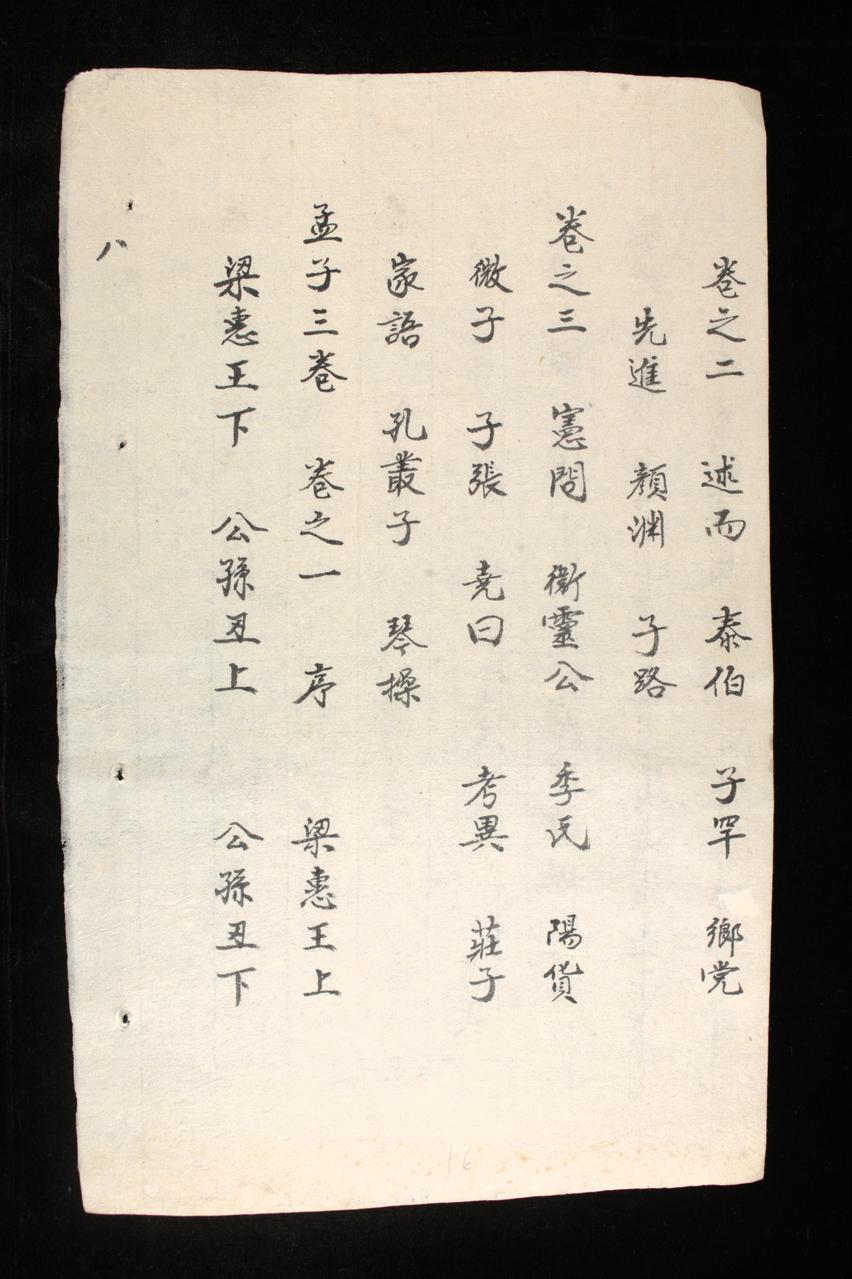 卷之二 述而 泰伯 子罕 鄉党
先進 顏渊 子路
卷之三 憲問 衞靈公 季氏 陽貨
微子 子張 堯曰 考異 莊子
家語 孔叢子 琴操
孟子三卷 卷之一 序 梁惠王上
梁惠王下 公孫丑上 公孫丑下
八
16